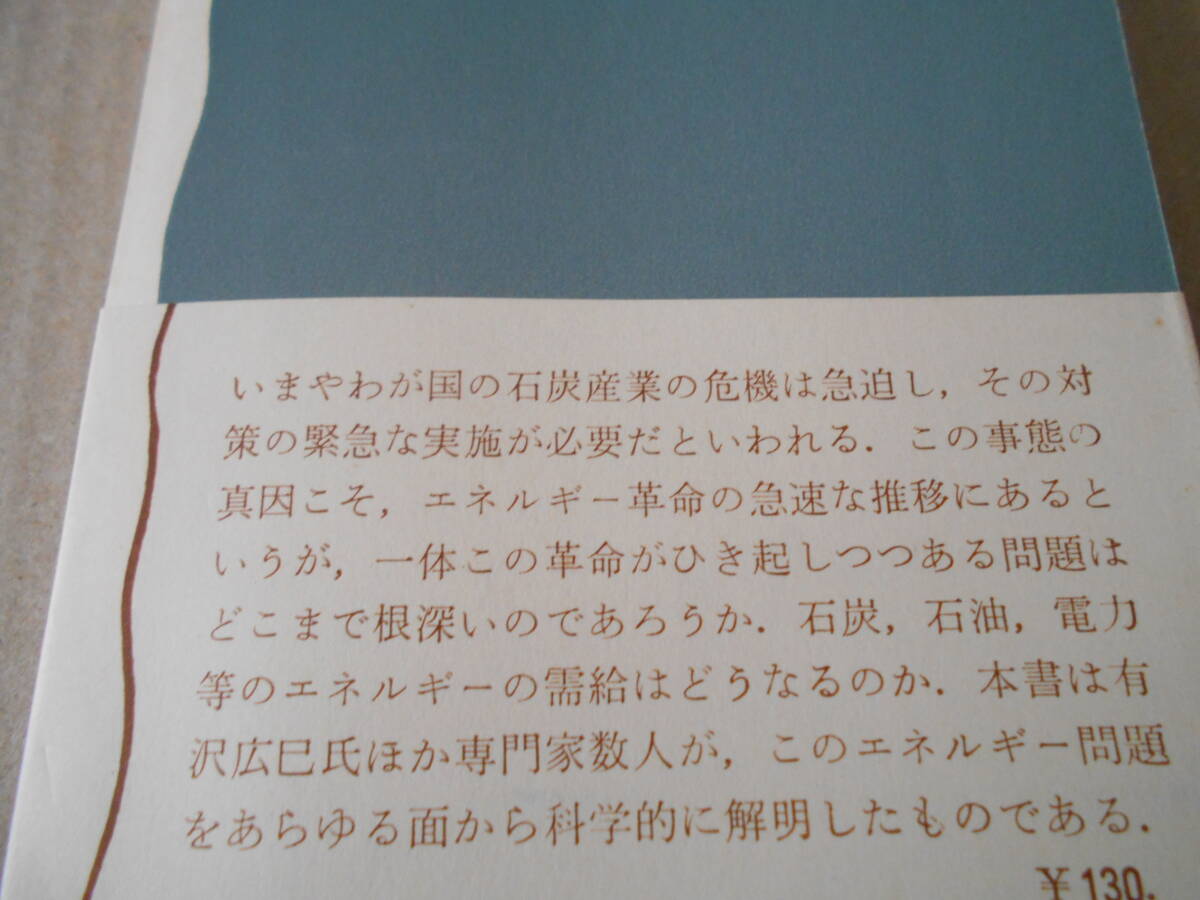 いまやわが国の石炭産業の危機は急迫し，その対
策の緊急な実施が必要だといわれる．この事態の
真因こそ，エネルギー革命の急速な推移にあると
いうが，一体この革命がひき起しつつある問題は
どこまで根深いのであろうか．石炭，石油，電力
等のエネルギーの需給はどうなるのか．本書は有
沢広巳氏ほか専門家数人が，このエネルギー問題
をあらゆる面から科学的に解明したものである．
￥130.